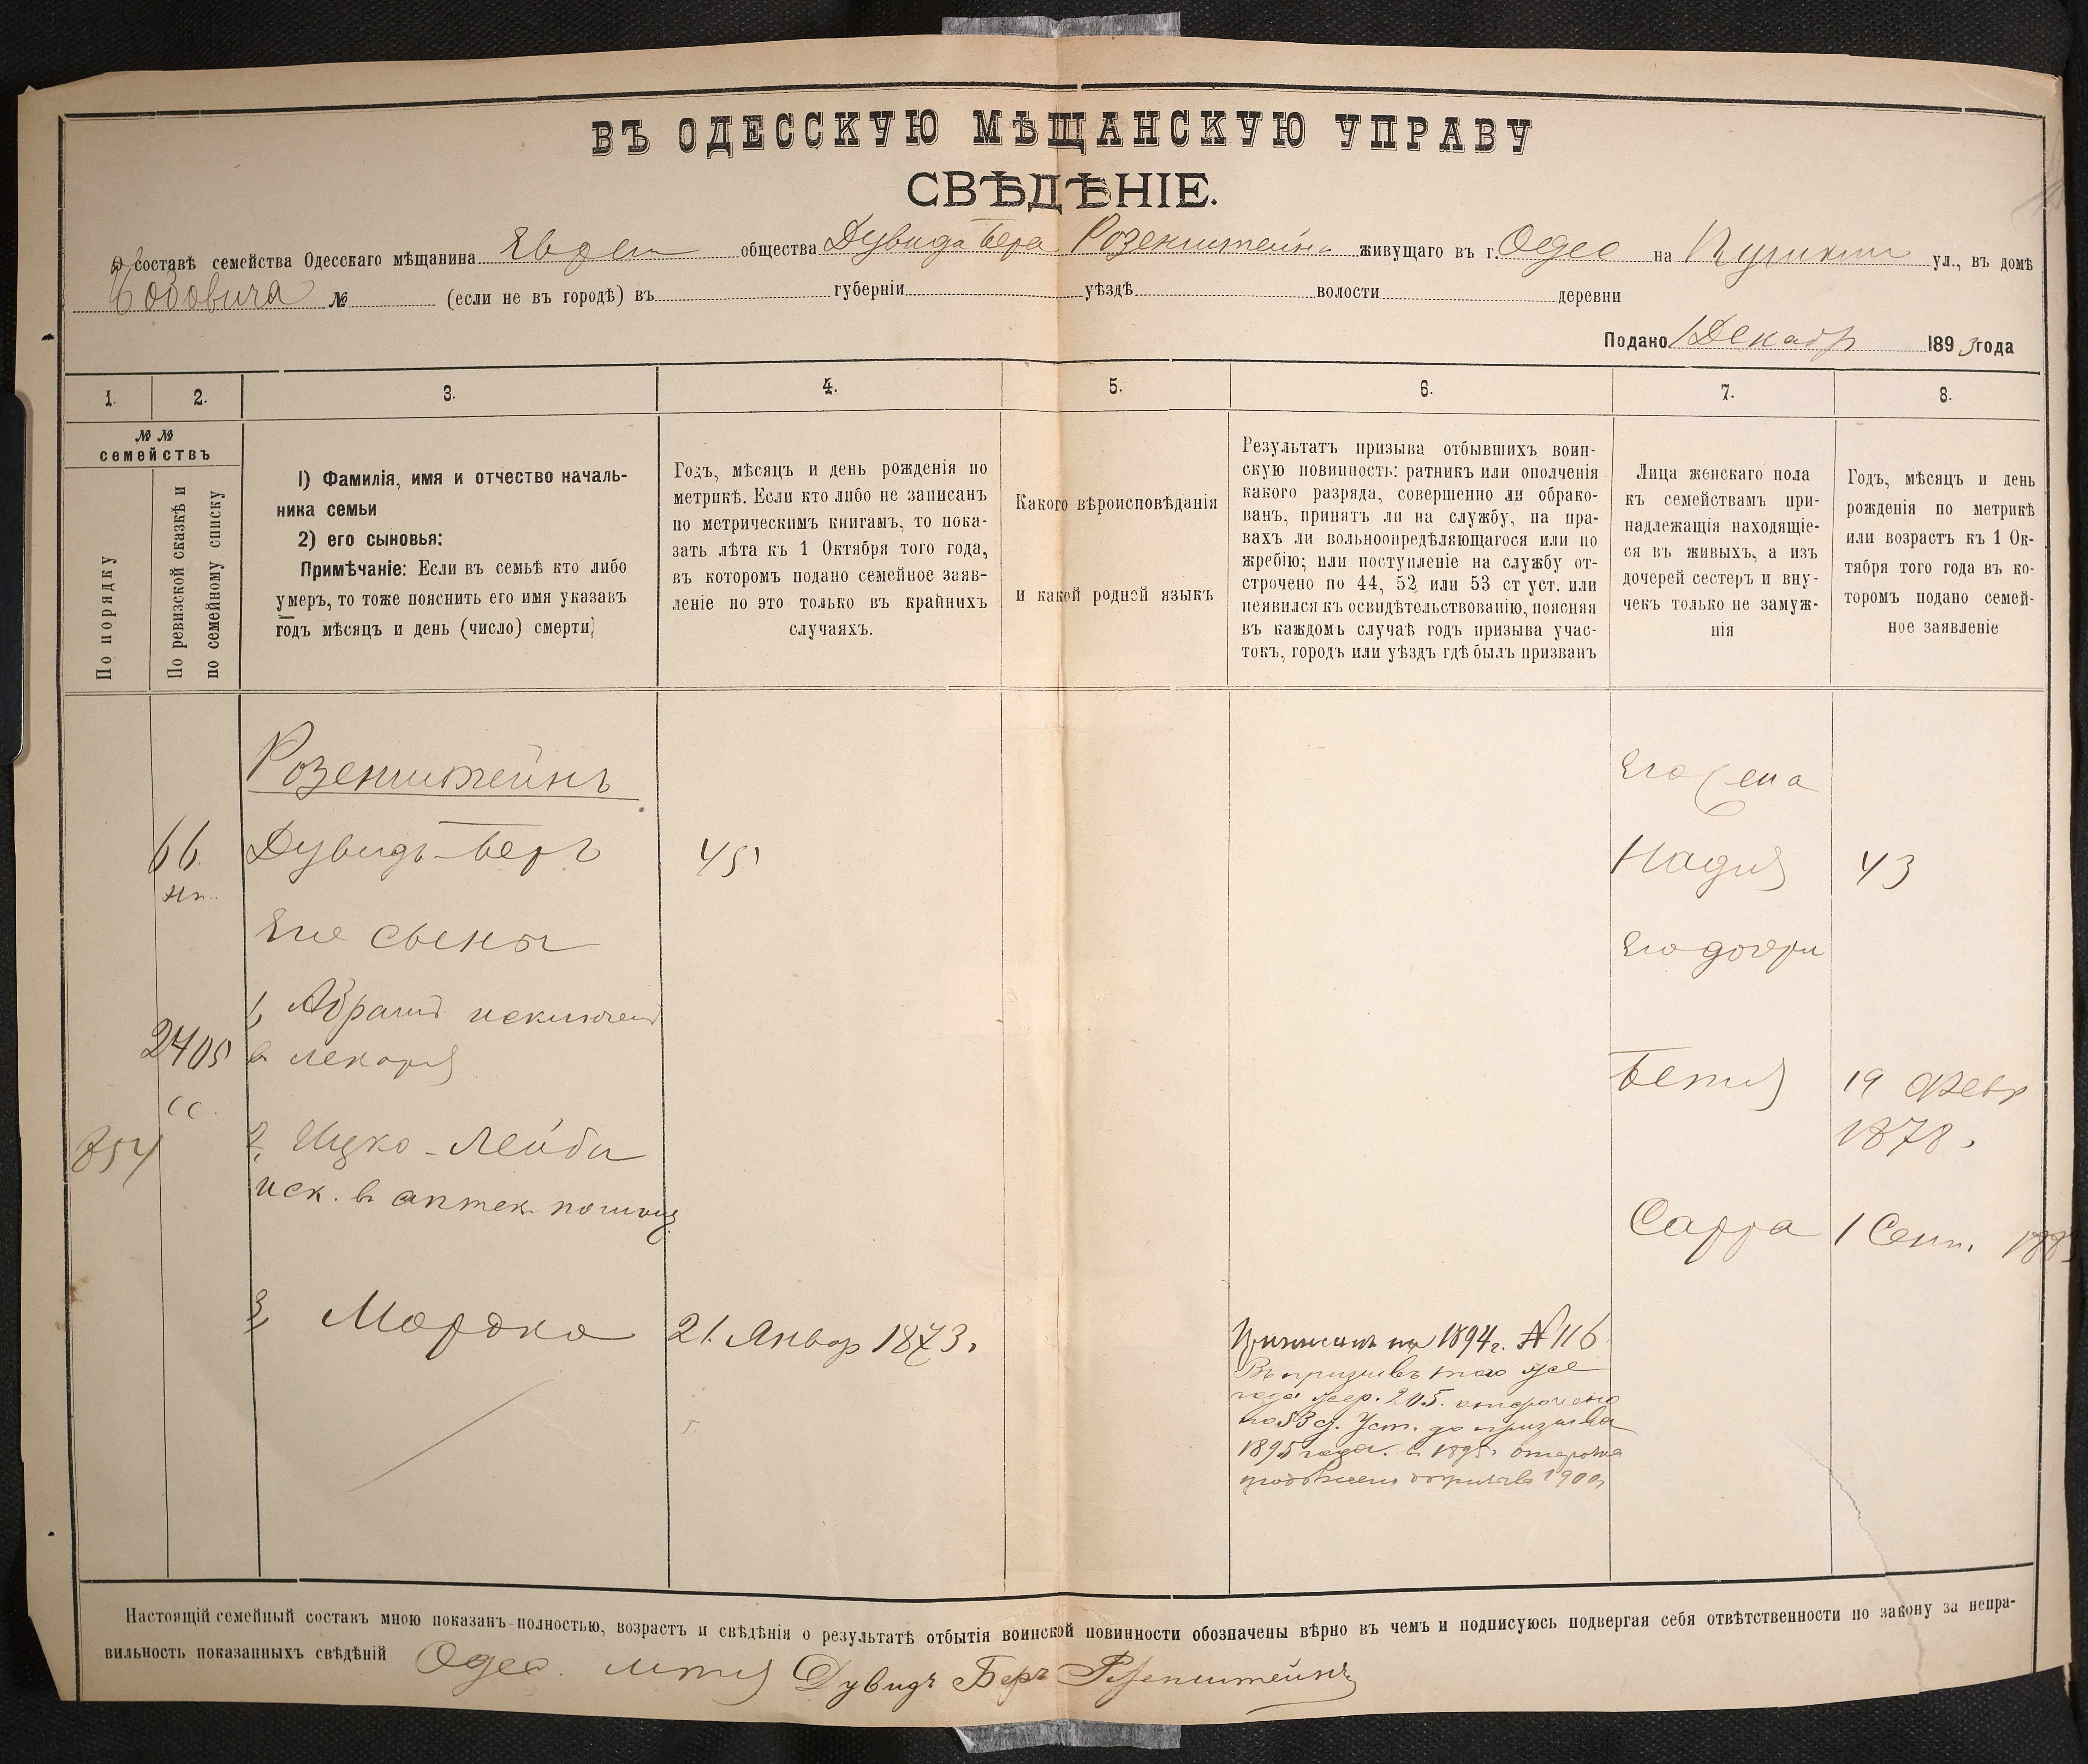 ВЪ ОДЕССКУЮ МѢЩАНСКУЮ УПРАВУ
СВѢДѢНІЕ.
о составѣ семейства Одесскаго мѣщанина Еврей общества Дувида Бера Розенштейна живущаго въ г. Одес на Пушкин ул., въ домѣ
№ (если не въ городѣ) въ губерніи уѣздѣ волости деревни
Подано 1 Декабр 1893 года
1. 2. 3. 4. 5. 6. 7. 8.
№ №
семействъ
По порядку
По ревизской сказкѣ и
по семейному списку
1) Фамилія, имя и отчество началь-
ника семьи
2) его сыновья:
Примѣчаніе: Если въ семьѣ кто либо
умеръ, то тоже пояснить его имя указавъ
годъ мѣсяцъ и день (число) смерти;
Годъ, мѣсяцъ и день рожденія по
метрикѣ. Если кто либо не записанъ
по метрическимъ книгамъ, то пока-
зать лѣта къ 1 Октября того года,
въ которомъ подано семейное заяв-
леніе но это только въ крайнихъ
случаяхъ.
Какого вѣроисповѣданія
и какой родной языкъ
Результатъ призыва отбывшихъ воин-
скую повинность: ратникъ или ополченія
какого разряда, совершенно ли обрако-
ванъ, принятъ ли на службу, на пра-
вахъ ли вольноопредѣляющагося или по
жребію; или поступленіе на службу от-
строчено по 44, 52 или 53 ст уст. или
неявился къ освидѣтельствованію, поясняя
въ каждомъ случаѣ годъ призыва учас-
токъ, городъ или уѣздъ гдѣ былъ призванъ
Лица женскаго пола
къ семействамъ при-
надлежащія находящіе-
ся въ живыхъ, а изъ
дочерей сестеръ и вну-
чекъ только не замуж-
нія
Годъ, мѣсяцъ и день
рожденія по метрикѣ
или возрастъ къ 1 Ок-
тября того года въ ко-
торомъ подано семей-
ное заявленіе
Розенштейнъ
Его жена
66. Дувидъ-Беръ 45 Надия 43
Его сыны
Его дочери
1, Абрамъ исключен
2405 в лекаря
Бетия 19 Февр
1878.
854 2, Ицко-Лейби
иск. в аптек. помощ.
Сарра 1 Сент. 188
3, Мордко 21 Январ 1873.
Приписанъ на 1894 г. № 116
Въ призывъ того же
года жер. 205. отсрочено
по 53 ст. Уст. до призыва
1895 года. в 1895. отсрочка
до призыва 1900
Настоящій семейный составъ мною показанъ полностью, возрастъ и свѣдѣнія о результатѣ отбытія воинской повинности обозначены вѣрно въ чемъ и подписуюсь подвергая себя отвѣтственности по закону за непра-
вильность показанныхъ свѣдѣній Одес. Дувидъ Беръ Розенштейнъ